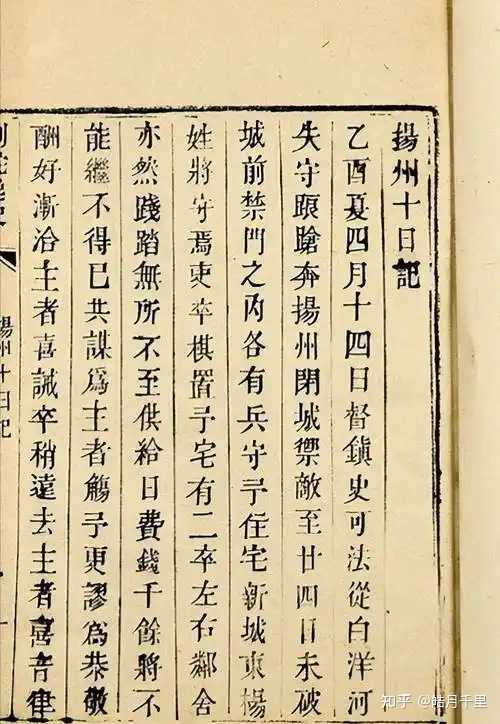 揚州十日記
乙酉夏四月十四日督鎮史可法從白洋河
失守踉蹌奔揚州閉城禦敵至廿四日未破
城前禁門之內各有兵守予住宅新城東楊
姓將守焉吏卒棋置予宅有二卒左右鄰舍
亦然踐踏無所不至供給日費錢千餘將不
能繼不得已共謀爲主者觴予更謬爲恭敬
酬好漸洽主者喜誡卒稍遠去主者喜音律
揚州十日記
知乎 @皓月千里